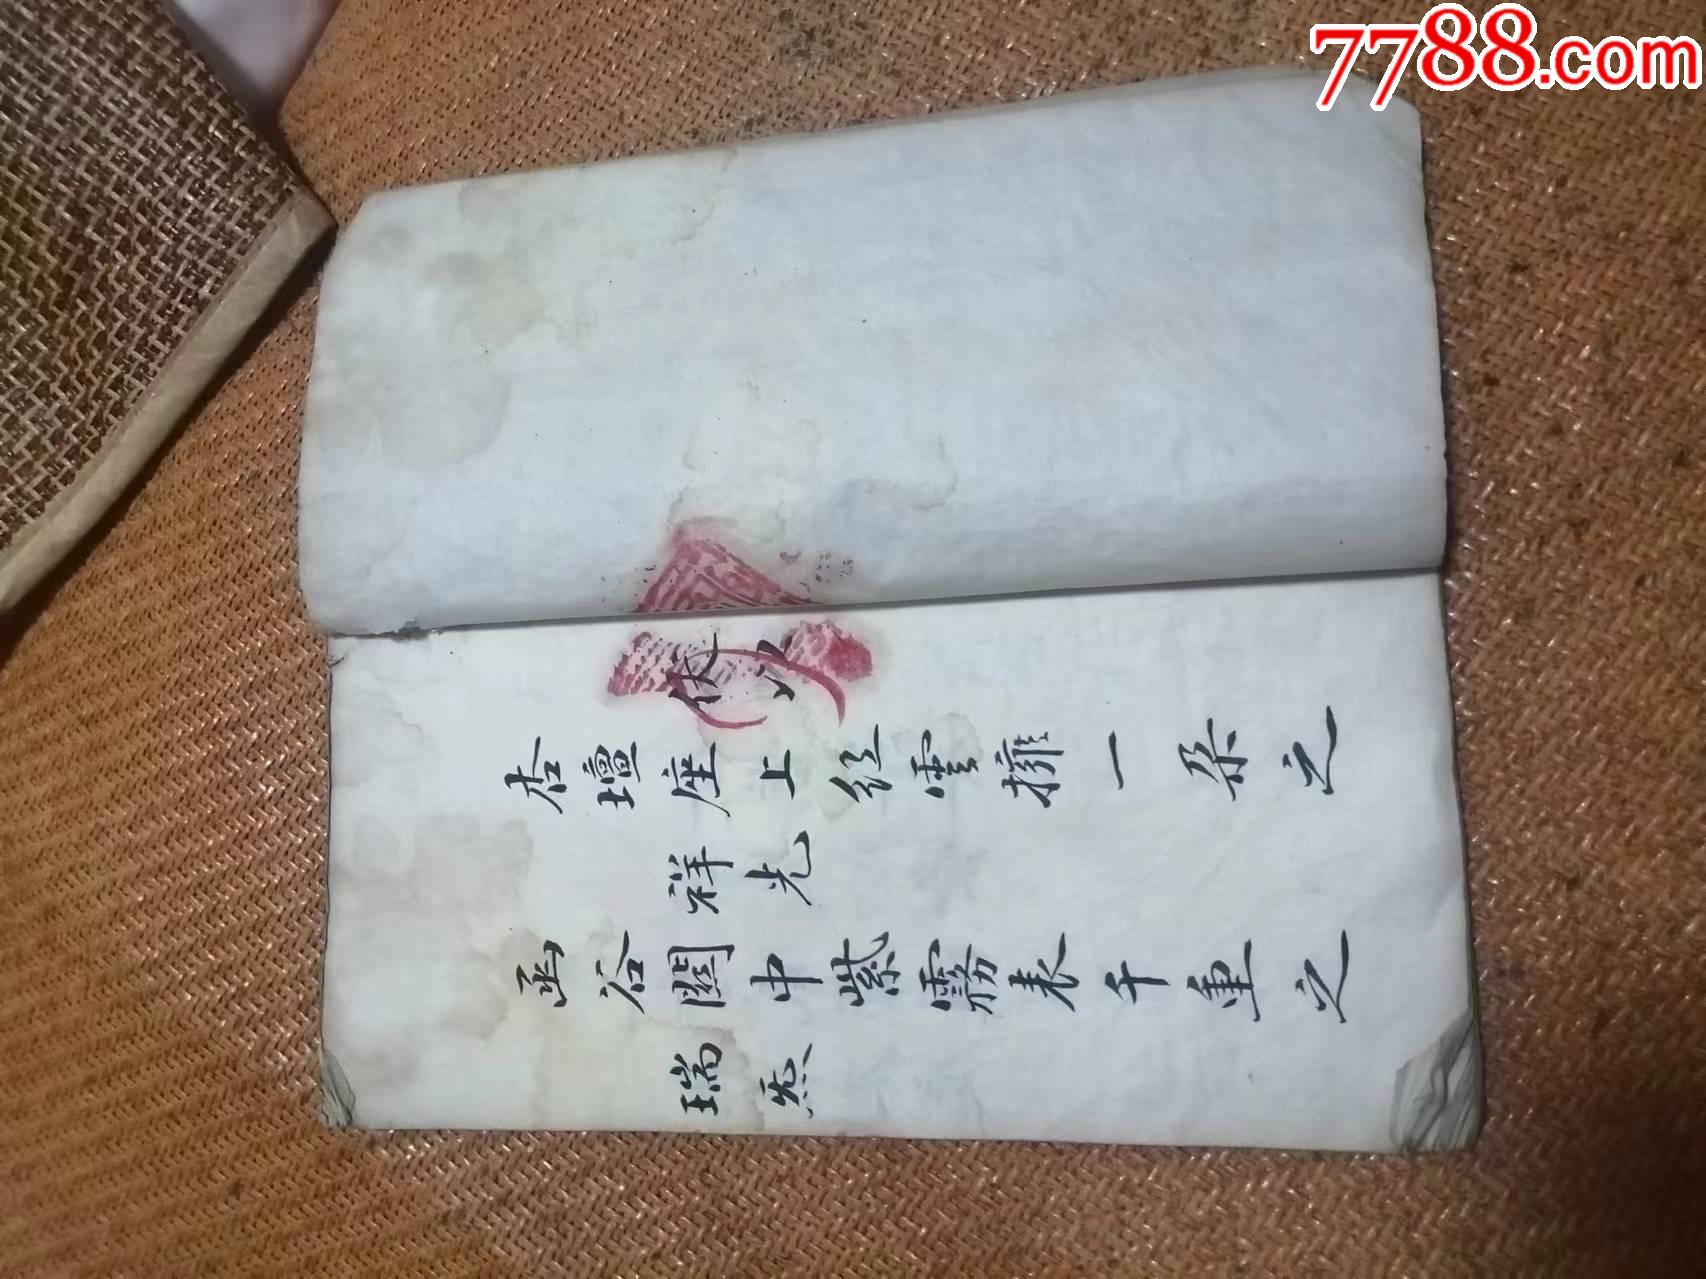 7788.com
伏以
杏壇座上紅雲擁一朵之
祥光
函谷關中紫霧表千重之
瑞炁